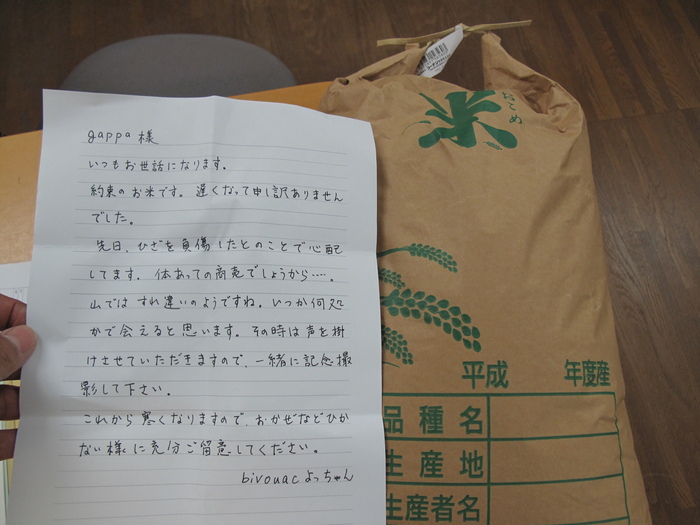 gappa 様
いつもお世話になります。
約束のお米です。遅くなって申し訳ありません
でした。
先日、ひざを負傷したとのことで心配
してます。体あっての商売でしょうから……。
山ではすれ違いのようですね。いつか何処
かで会えると思います。その時は声を掛
けさせていただきますので、一緒に記念撮
影して下さい。
これから寒くなりますので、おかぜなどひか
ない様に充分ご留意してください。
bivouac よっちゃん
米
おこめ
平成 年度産
品種名
生産地
生産者名